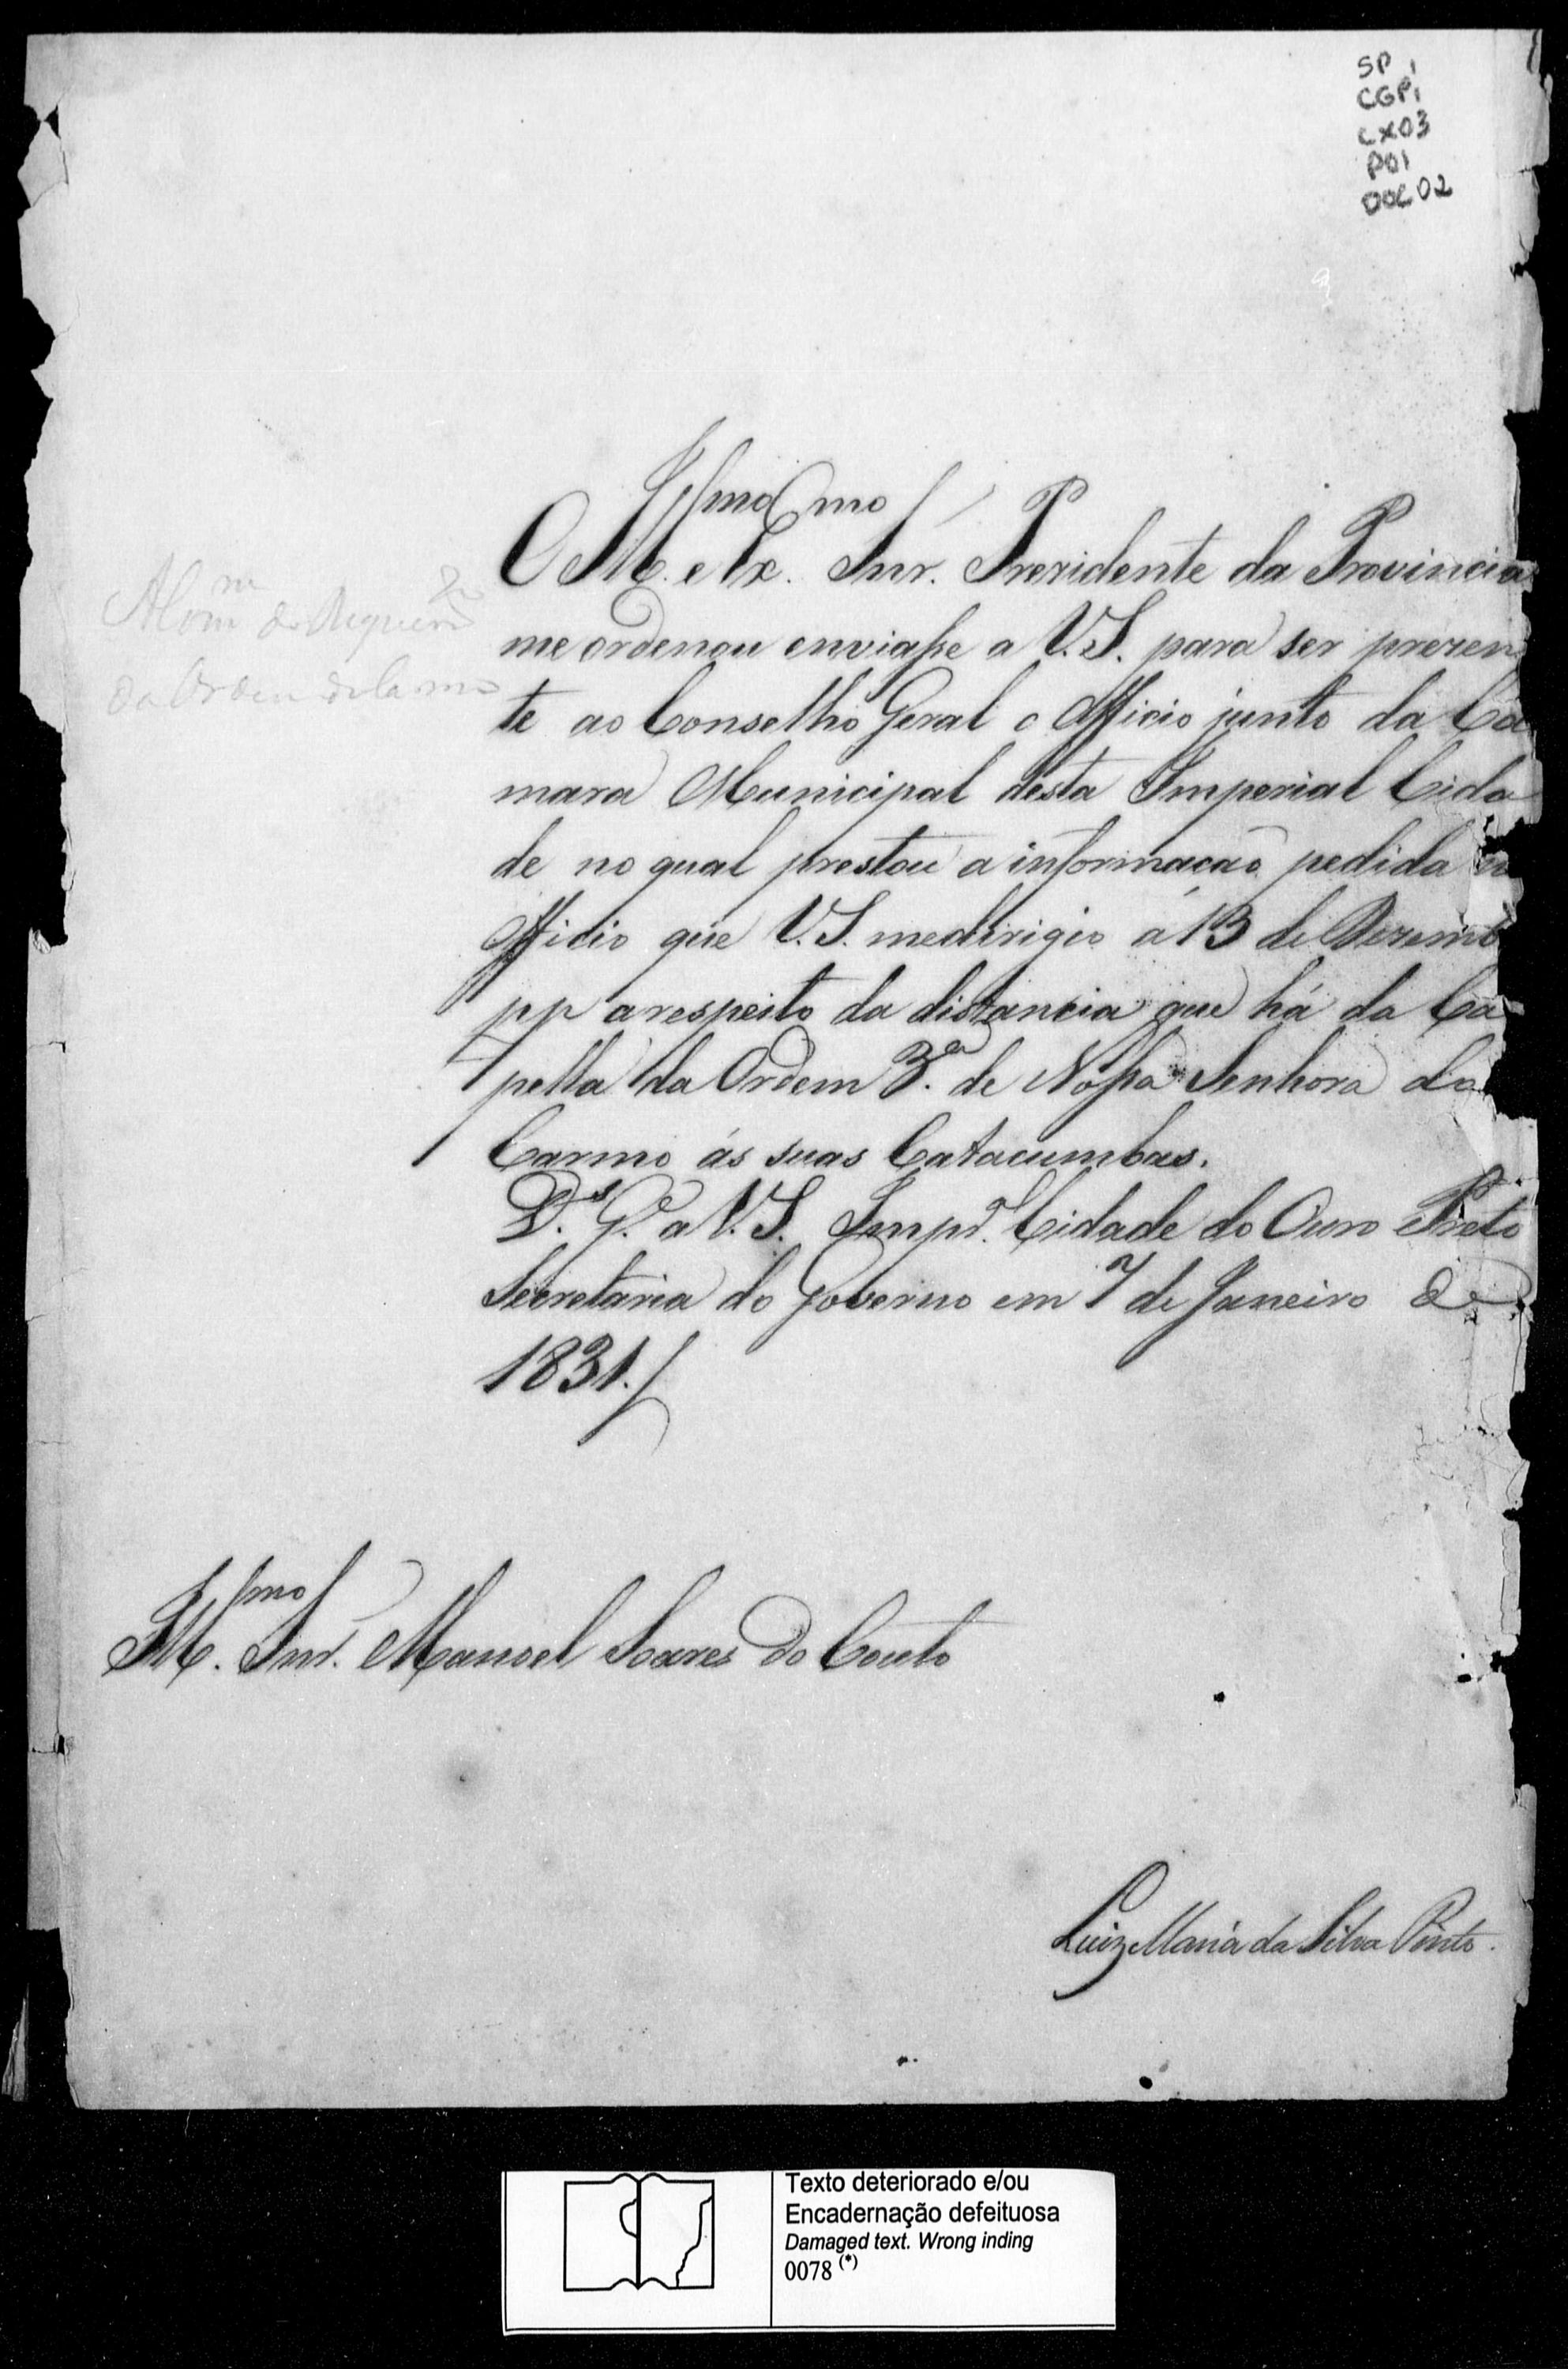 SP
CGP1
CX03
P01
DOC 02
O Ill.mo e Ex.mo Snr. Prezidente da Provincia
me ordenou enviasse a V.S. para ser prezen
te ao Conselho Geral o Officio junto da Ca
mara Municipal desta Imperial Cida
de no qual prestou a informação pedida
Officio que V.S. medirigio a 13 de Dezemb
pp arespeito da distancia que há da Ca
pella da Ordem 3.a de Nossa Senhora do
Carmo ás suas Catacumbas.
D.s G.e a V.S. Imp.l Cidade do Ouro Preto
Secretaria do Governo em 7 de Janeiro de
1831.
da Ordem do Carmo
Ill.mo Snr. Manoel Soares do Couto
Luiz Maria da Silva Pinto.
Texto deteriorado e/ou
Encadernação defeituosa
Damaged text. Wrong inding
0078 (*)